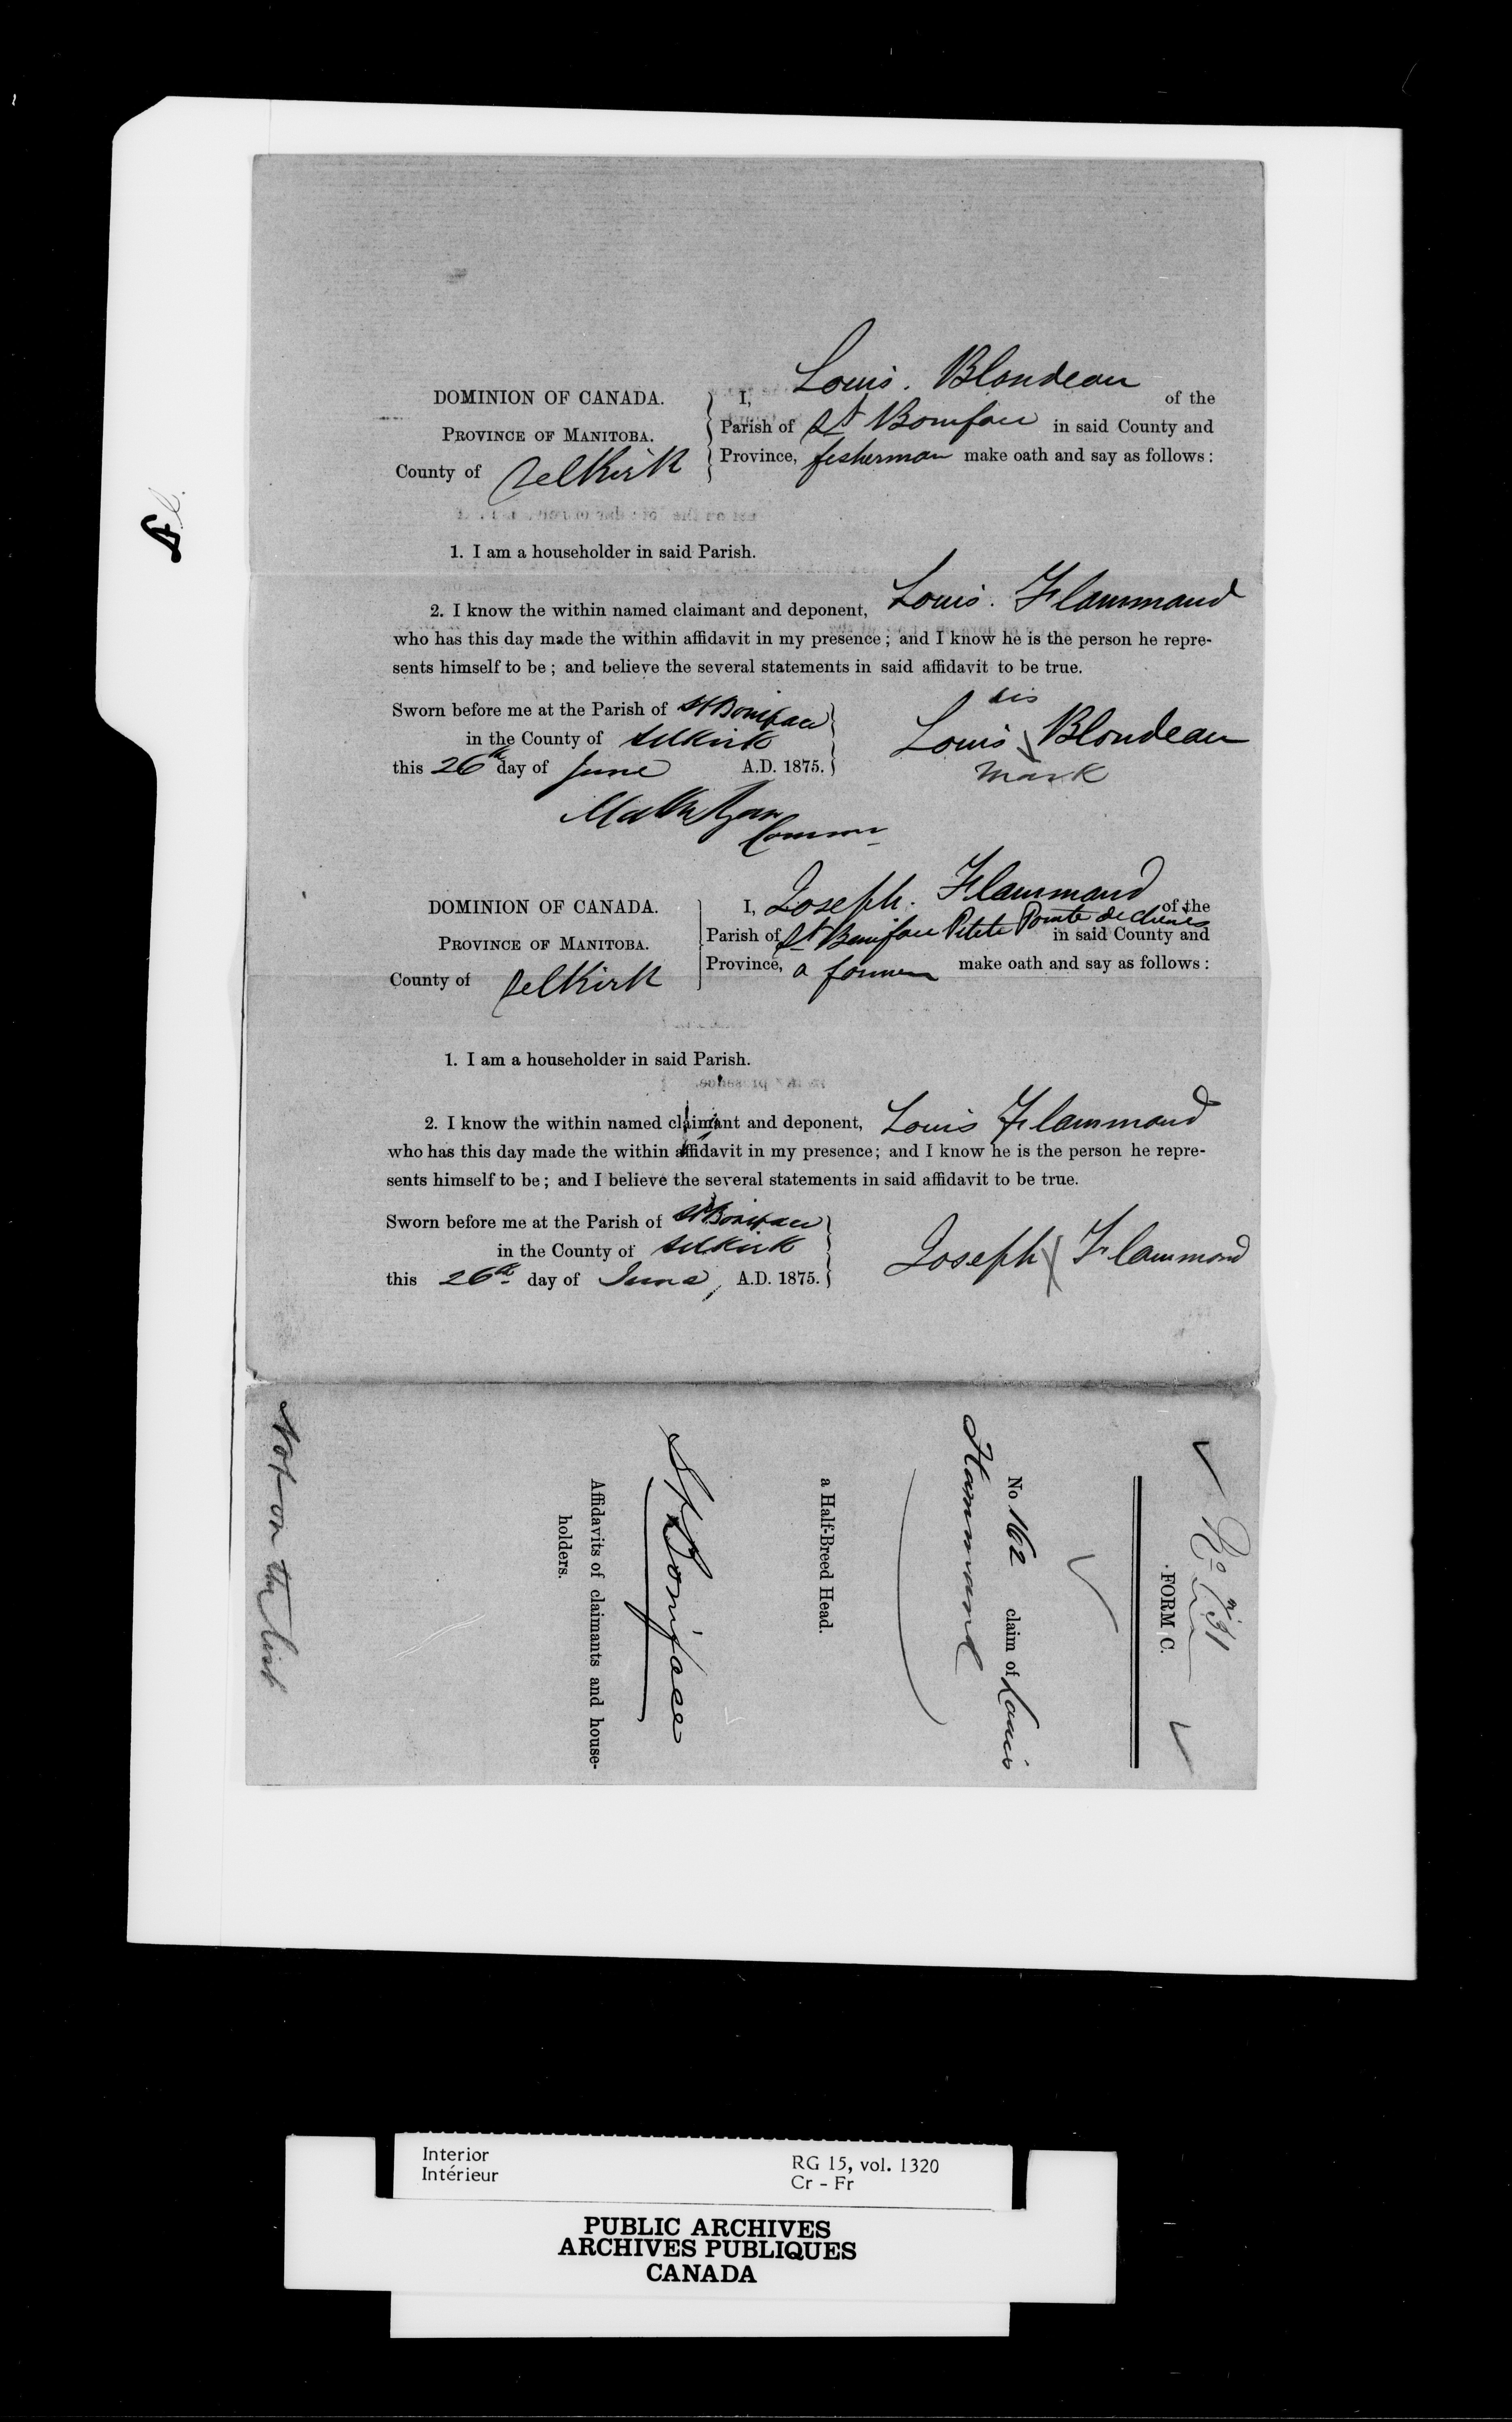 DOMINION OF CANADA.
PROVINCE OF MANITOBA.
County of Selkirk
I, Louis. Blondeau of the
Parish of St Boniface in said County and
Province, fisherman make oath and say as follows:
1. I am a householder in said Parish.
2. I know the within named claimant and deponent, Louis. Flammand
who has this day made the within affidavit in my presence; and I know he is the person he repre-
sents himself to be; and believe the several statements in said affidavit to be true.
Sworn before me at the Parish of St Boniface
in the County of Selkirk
this 26th day of June A.D. 1875.
his
Louis Blondeau
mark
Matt Ryan
Commr
DOMINION OF CANADA.
PROVINCE OF MANITOBA.
County of Selkirk
I, Joseph. Flammand of the
Parish of St Boniface Petite Pointe de chenes in said County and
Province, a farmer make oath and say as follows:
1. I am a householder in said Parish.
2. I know the within named claimant and deponent, Louis Flammand
who has this day made the within affidavit in my presence; and I know he is the person he repre-
sents himself to be; and I believe the several statements in said affidavit to be true.
Sworn before me at the Parish of St Boniface
in the County of Selkirk
this 26th day of June, A.D. 1875.
Joseph X Flammond
FORM C.
No 162 claim of Louis
Flammand
a Half-Breed Head.
St Boniface
Affidavits of claimants and house-
holders.
Not on the list
Interior
Intérieur
RG 15, vol. 1320
Cr - Fr
PUBLIC ARCHIVES
ARCHIVES PUBLIQUES
CANADA